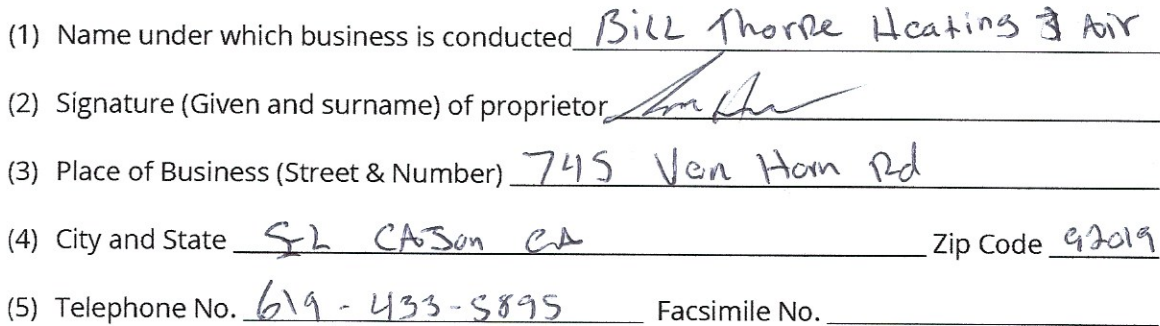 (1) Name under which business is conducted Bill Thorpe Heating & Air
(2) Signature (Given and surname) of proprietor
(3) Place of Business (Street & Number) 745 Van Horn Rd
(4) City and State EL CAJon CA Zip Code 92019
(5) Telephone No. 619-433-5895 Facsimile No.